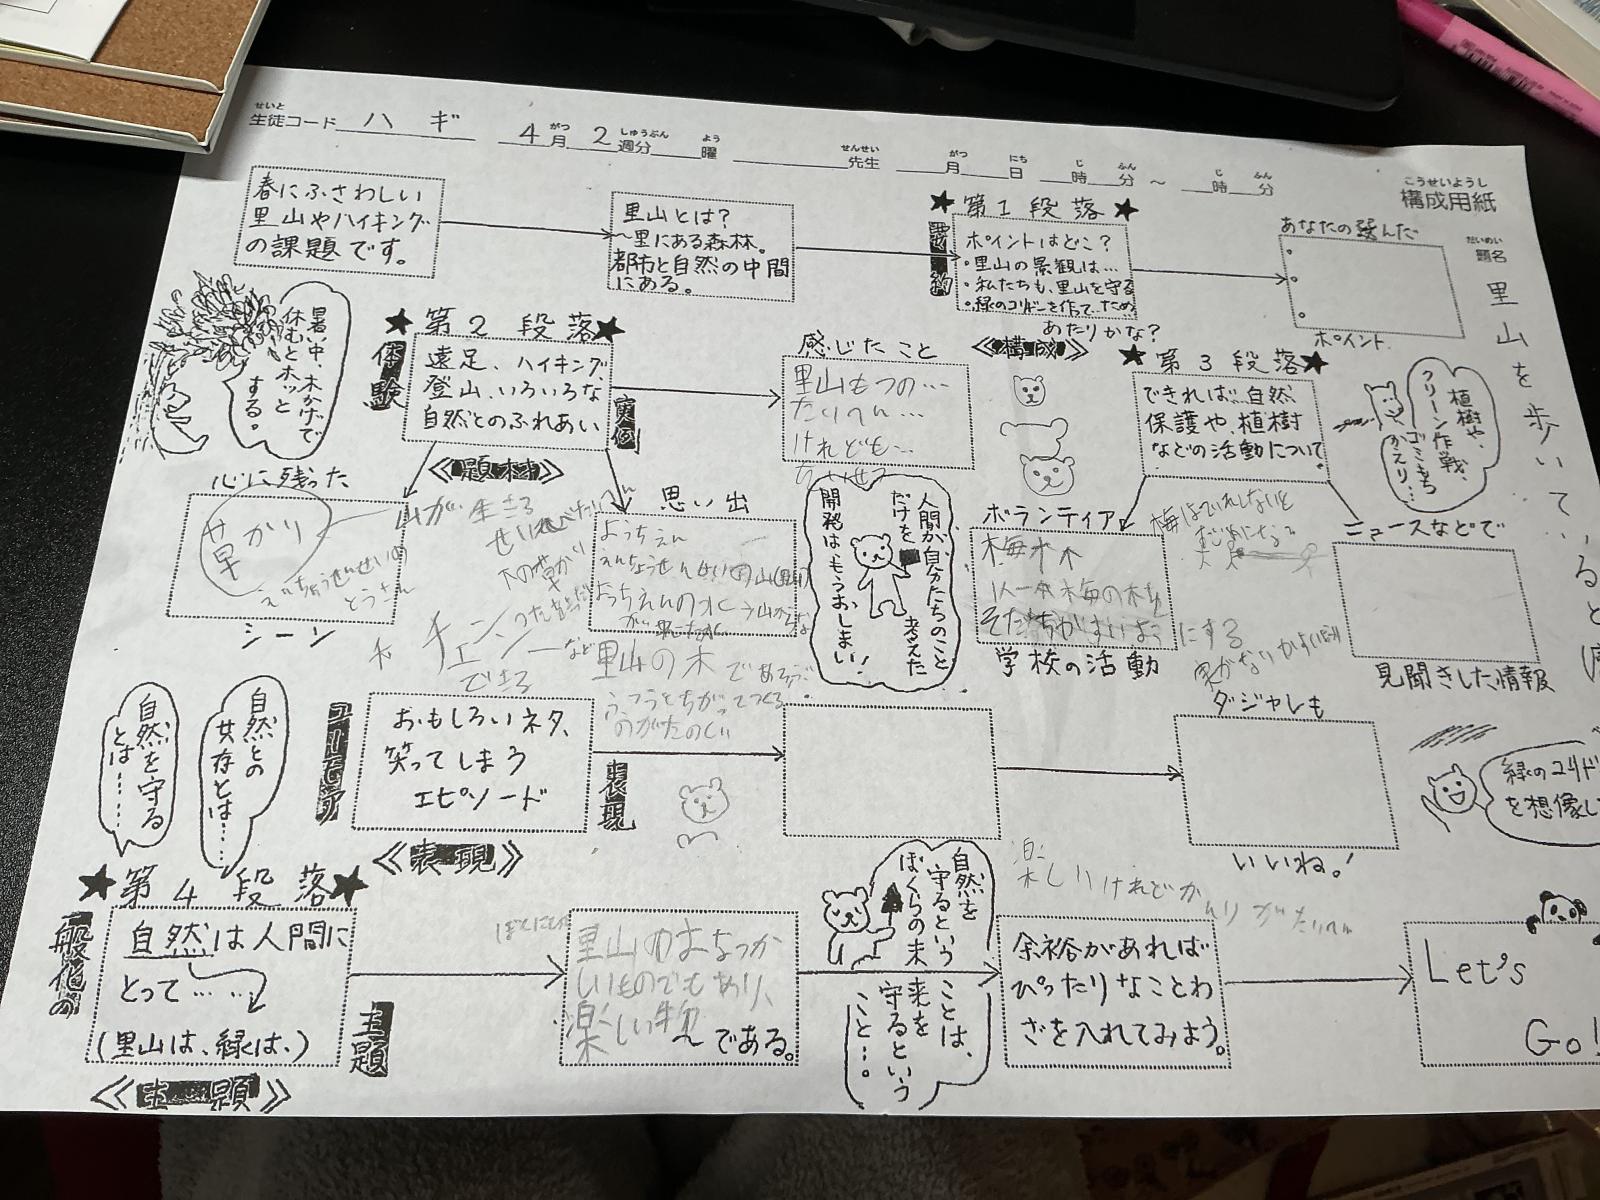 せいと
生徒コード ハギ 4月 2週分 曜 先生 月 日 時 分 ～ 時 分
がつ しゅうぶん よう せんせい がつ にち じ ふん じ ふん
こうせいようし
構成用紙
だいめい
題名
里山を歩いているど
春にふさわしい
里山やハイキング
の課題です。
里山とは?
～里にある森林。
都市と自然の中間
にある。
★第1段落★
要約
ポイントはどこ?
・里山の景観は…
・私たちも、里山を守る
・緑のコリドーを作て、ため
あたりかな?
《構成》
あなたの選んだ
ポイント
暑い中、木かげで
休むとホッと
する。
★第2段落★
体験
遠足、ハイキング
登山、いろいろな
自然とのふれあい
《題材》
実例
感じたこと
里山もつの…
たりへん…
けれども…
★第3段落★
できれば…自然
保護や、植樹
などの活動について
植樹や、
クリーン作戦、
ゴミもち
かえり…
心に残った
草かり
えんちょうせんせいの
とうさん
シーン
山が生きる
木の草かり
チェンソーなど
できる
思い出
ようちえん
えんちょうせんせいの山(里山)
ようちえんの
里山の木であそぶ
ふつうとちがってつくる
のがたのしい
人間が自分たちのこと
だけを考えた
開発は、もうおしまい!
ボランティア
梅の木
1人一本梅の木を
そだちがよいようにする
学校の活動
ニュースなどで
見聞きした情報
自然を守る
とは……
自然との
共存とは……
ユーモア
おもしろいネタ、
笑ってしまう
エピソード
《表現》
表現
ダジャレも
いいね!
緑のコリド
を想像し
★第4段落★
一般化の
自然は人間に
とって……
(里山は、緑は、)
《主題》
主題
里山はなつか
しいものでもあり、
楽しい物である。
自然を
守るという
ことは、
ぼくらの未
来を
守るという
こと…。
楽しいけれどか
んりがたいへん
余裕があれば
ぴったりなことわ
ざを入れてみよう。
Let's
Go!